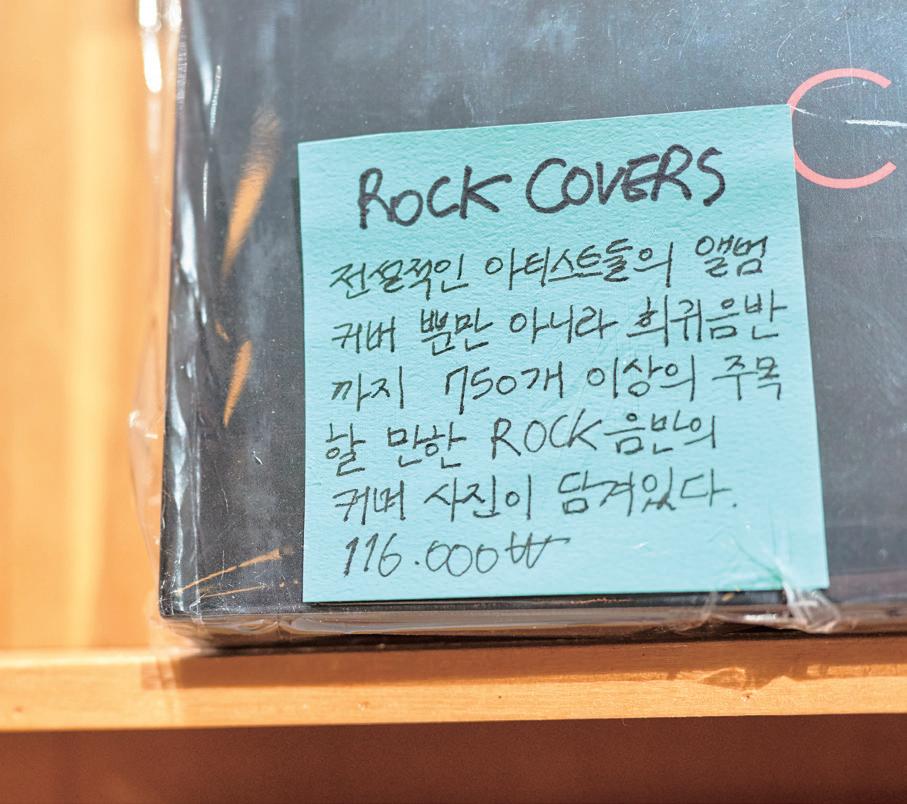 ROCK COVERS
전설적인 아티스트들의 앨범
커버 뿐만 아니라 희귀음반
까지 750개 이상의 주목
할 만한 ROCK 음반의
커버 사진이 담겨있다.
116.000₩
C